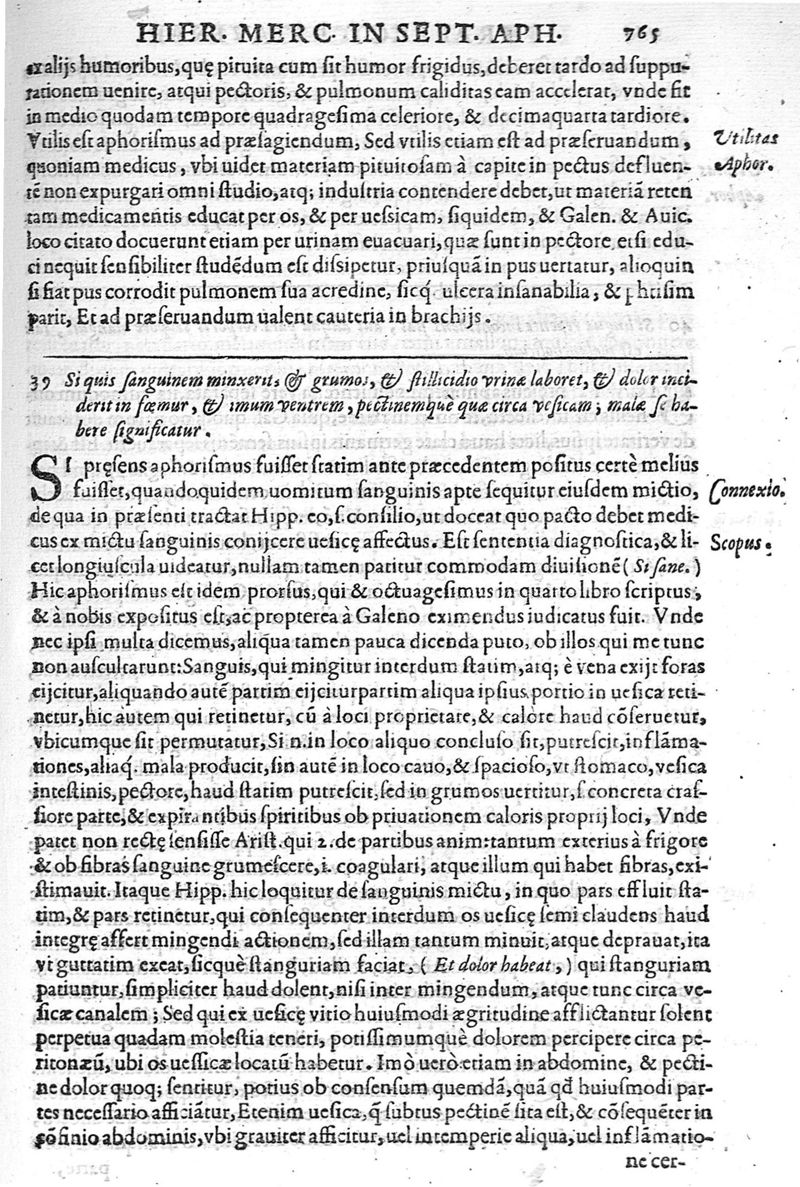 HIER. MERC. IN SEPT. APH. 765
ex alijs humoribus,quę pituita cum ſit humor frigidus,deberet tardo ad ſuppu-
rationem uenire, atqui pectoris, & pulmonum caliditas eam accelerat, vnde fit
in medio quodam tempore quadrageſima celeriore, & decimaquarta tardiore.
Vtilis eſt aphoriſmus ad præſagiendum, Sed vtilis etiam eſt ad præſeruandum,
Utilitas
quoniam medicus, vbi uidet materiam pituitoſam à capite in pectus defluen-
Aphor.
tē non expurgari omni ſtudio,atq; induſtria contendere debet,ut materiā reten
tam medicamentis educat per os, & per ueſsicam, ſiquidem, & Galen. & Auic.
loco citato docuerunt etiam per urinam euacuari,quæ ſunt in pectore, etſi edu-
ci nequit ſenſibiliter ſtudēdum eſt diſsipetur, priuſquā in pus uertatur, alioquin
ſi fiat pus corrodit pulmonem ſua acredine, ſicq́. ulcera inſanabilia, & phtiſim
parit, Et ad præſeruandum ualent cauteria in brachijs.
39 Si quis ſanguinem minxerit, & grumos, & ſtillicidio vrinæ laboret, & dolor inci-
derit in fœmur, & imum ventrem, pectinemquè quæ circa veſicam; malæ ſe ha-
bere ſignificatur.
SI pręſens aphoriſmus fuiſſet ſtatim ante præcedentem poſitus certè melius
fuiſſet,quandoquidem uomitum ſanguinis apte ſequitur eiuſdem mictio,
Connexio.
de qua in præſenti tractat Hipp. eo,ſ. conſilio,ut doceat quo pacto debet medi
cus ex mictu ſanguinis conijcere ueſicę affectus. Eſt ſententia diagnoſtica,& li-
Scopus.
cet longiuſcula uideatur,nullam tamen patitur commodam diuiſionē (Si ſane.)
Hic aphoriſmus eſt idem prorſus,qui & octuageſimus in quarto libro ſcriptus,
& à nobis expoſitus eſt,ac propterea à Galeno eximendus iudicatus fuit. Vnde
nec ipſi multa dicemus,aliqua tamen pauca dicenda puto, ob illos qui me tunc
non auſcultarunt:Sanguis,qui mingitur interdum ſtatim,atq; è vena exijt foras
eijcitur,aliquando autē partim eijciturpartim aliqua ipſius portio in ueſica reti-
netur,hic autem qui retinetur, cū à loci proprietate,& calore haud cōſeruetur,
vbicumque ſit permutatur, Si n.in loco aliquo concluſo ſit,putreſcit,inflāma-
tiones,aliaq́. mala producit,ſin autē in loco cauo,& ſpacioſo,vt ſtomaco,veſica
inteſtinis,pectore,haud ſtatim putreſcit,ſed in grumos uertitur,ſ concreta craſ-
ſiore parte,& expirantibus ſpiritibus ob priuationem caloris proprij loci, Vnde
patet non rectę ſenſiſſe Ariſt.qui 2.de partibus anim:tantum exterius à frigore
& ob fibras ſanguinē grumeſcere,i. coagulari, atque illum qui habet fibras,exi-
ſtimauit. Itaque Hipp. hic loquitur de ſanguinis mictu, in quo pars effluit ſta-
tim,& pars retinetur,qui conſequenter interdum os ueſicę ſemi claudens haud
integrę affert mingendi actionem,ſed illam tantum minuit,atque deprauat,ita
vt guttatim exeat,ſicquè ſtanguriam faciat, ( Et dolor habeat,) qui ſtanguriam
patiuntur,ſimpliciter haud dolent,niſi inter mingendum, atque tunc circa ve-
ſicæ canalem; Sed qui ex ueſicę vitio huiuſmodi ægritudine afflictantur ſolent
perpetua quadam moleſtia teneri, potiſsimumquè dolorem percipere circa pe-
ritonæū, ubi os ueſſicæ locatū habetur. Imò uerò etiam in abdomine, & pecti-
ne dolor quoq; ſentitur, potius ob conſenſum quemdā,quā qđ huiuſmodi par-
tes neceſſario afficiātur, Etenim ueſica,q̄ ſubtus pectinē ſita eſt,& cōſequēter in
cōfinio abdominis,vbi grauiter afficitur,uel intemperie aliqua,uel inflāmatio-
ne cer-